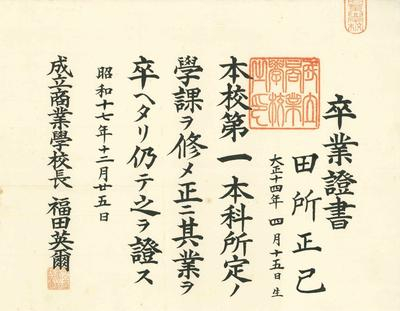 卒業證書
田所正己
大正十四年 四月十五日生
本校第一本科所定ノ
學課ヲ修メ正ニ其業ヲ
卒ヘタリ仍テ之ヲ證ス
昭和十七年十二月廿五日
成立商業學校長 福田英爾
成立商業學校之印